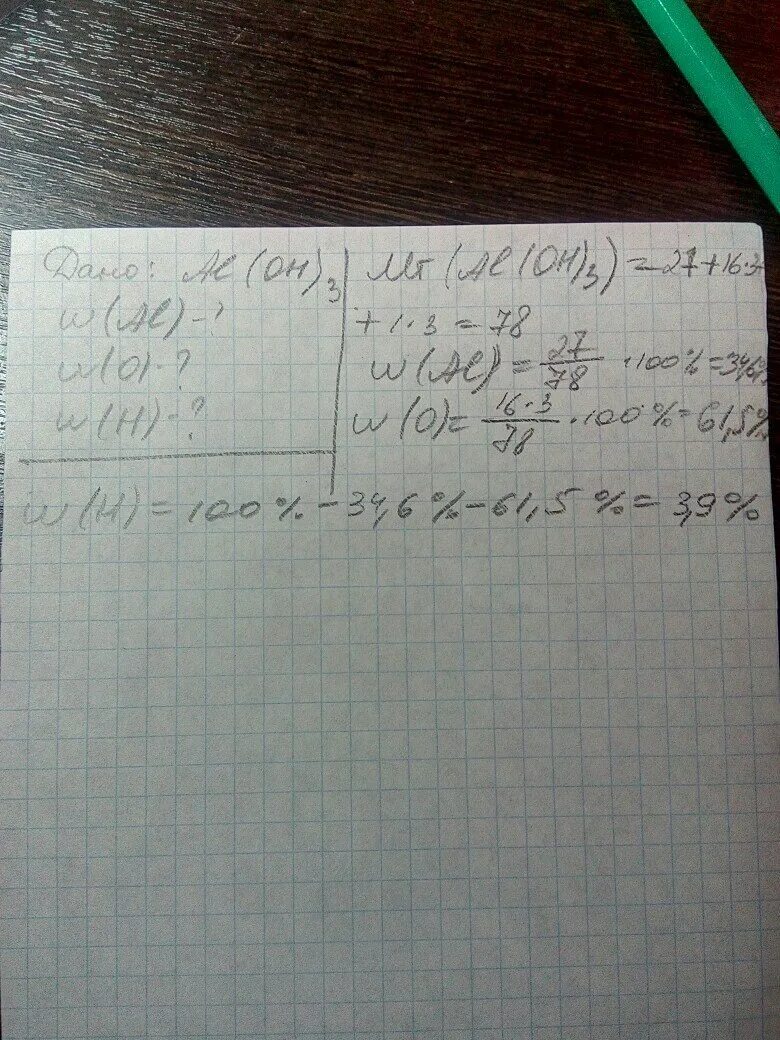 Дано: Al(OH)₃
w(Al)-?
w(O)-?
w(H)-?
Mr(Al(OH)₃) = 27+16·3
+1·3=78
w(Al) = 27/78 ·100%=34,6%
w(O)= 16·3/78 ·100%=61,5%
w(H)=100%-34,6%-61,5%=3,9%